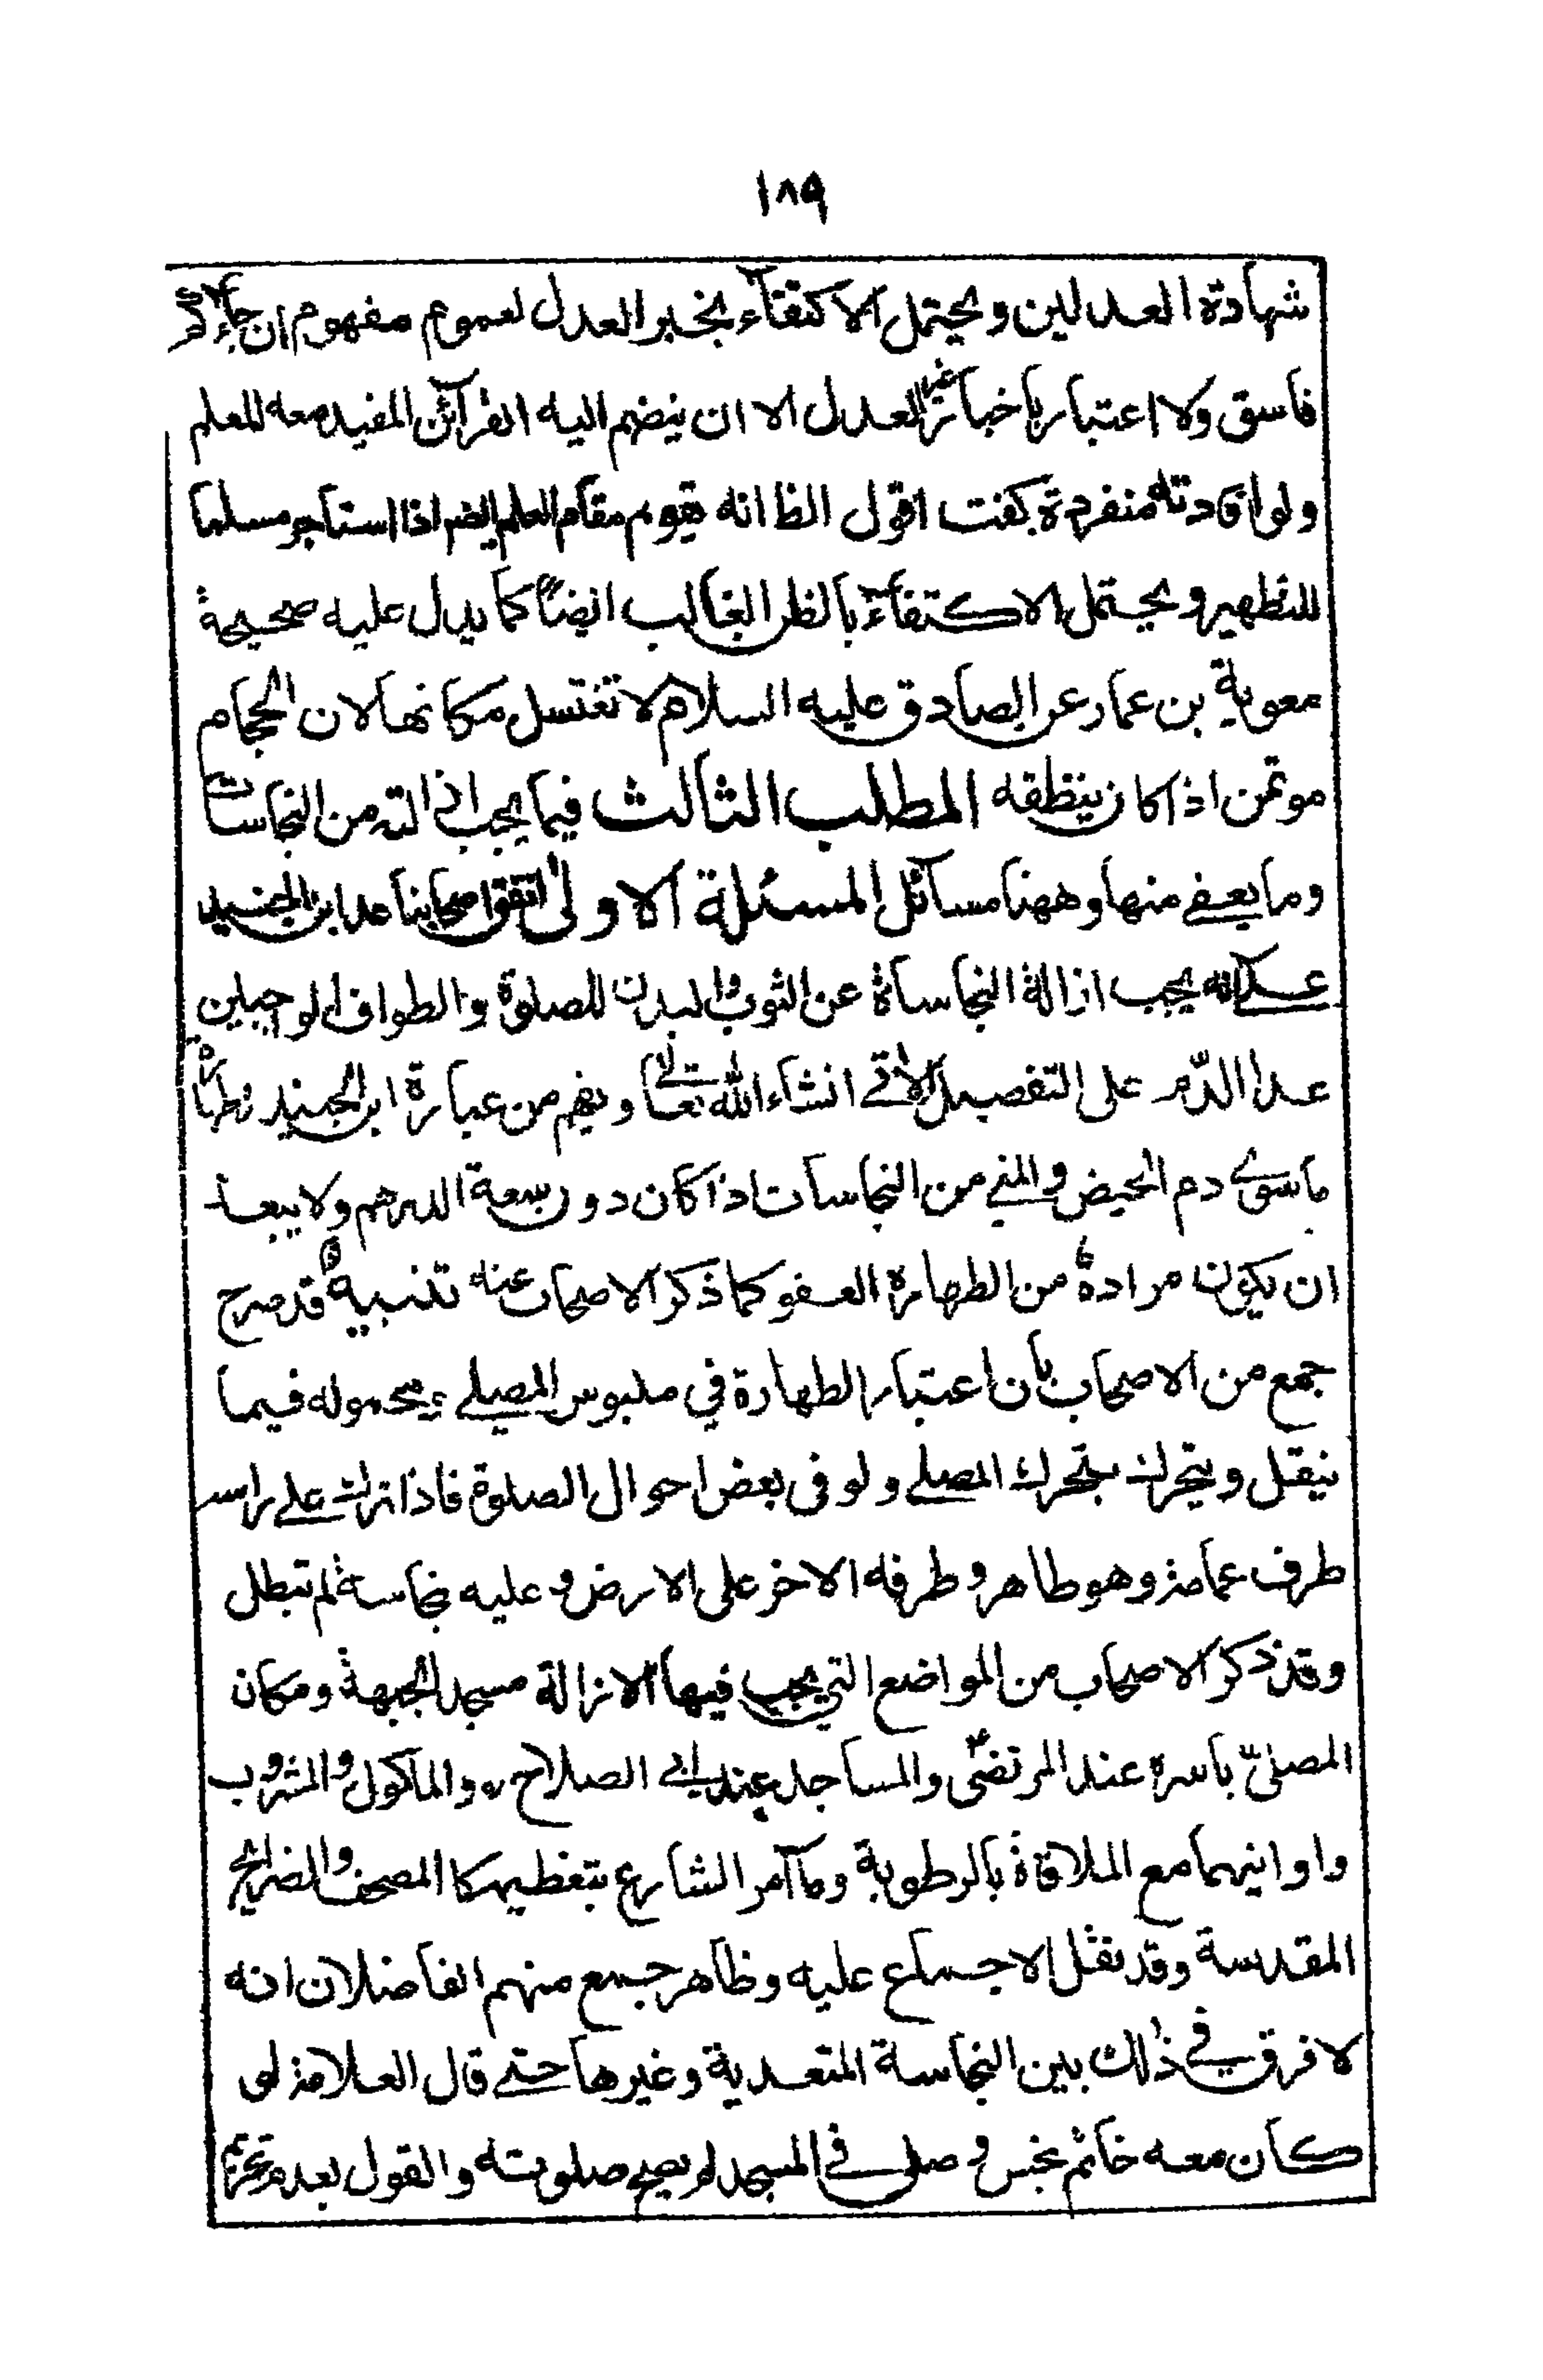 ١٨٩
شهادة العدلين ويحتمل الاكتفآء بخبر العدل لعموم مفهوم ان جاءكم
فاسق ولا اعتبار باخبار غير العدل الا ان ينضم اليه القرآئن المفيد معه للعلم
ولو افادته منفردة كفت اقول الظ انه يقوم مقام العلم ايضم اذا استاجر مسلما
للتطهير ويحتمل الاكتفآء بالظن الغالب ايضاً كما يدل عليه صحيحة
معوية بن عمار عن الصادق عليه السلام لا تغتسل مكانها لان الحجام
موتمن اذا كان ينظفه المطلب الثالث فيما يجب ازالته من النجاسات
وما يعفى منها وههنا مسآئل المسئلة الاولى اتفق اصحابنا عدا ابن الجنيد
على انه يجب ازالة النجاساة عن الثوب والبدن للصلوة والطواف الواجبين
عدا الدّم على التفصيل الاتى انشاء الله تعالى ويفهم من عبارة ابن الجنيد طهارة
ما سوى دم الحيض والمني من النجاسات اذا كان دون سعة الدرهم ولا يبعد
ان يكون مرادهُ من الطهارة العفو كما ذكر الاصحاب عنه تنبيه قد صرح
جمع من الاصحاب بأن اعتبار الطهارة في ملبوس المصلي ومحموله فيما
ينقل ويتحرك بتحرك المصلي ولو فى بعض احوال الصلوة فاذا ترك على راسه
طرف عمامة وهو طاهر وطرفه الاخر على الارض وعليه نجاسة لم تبطل
وقد ذكر الاصحاب من المواضع التي يجب فيها الازالة مسجد الجبهة ومكان
المصلىّ باسره عند المرتضى والمساجد عند ابي الصلاح والماكول والمشروب
واوانيهما مع الملاقاة بالرطوبة وما آمر الشارع بتعظيمه كالمصحف والضرايح
المقدسة وقد نقل الاجماع عليه وظاهر جمع منهم الفاضلان انه
لا فرق في ذلك بين النجاسة المتعدية وغيرها حتى قال العلامة لو
كان معه خاتم نجس وصلى في المسجد لم يصح صلوته والقول بعدم تحريم